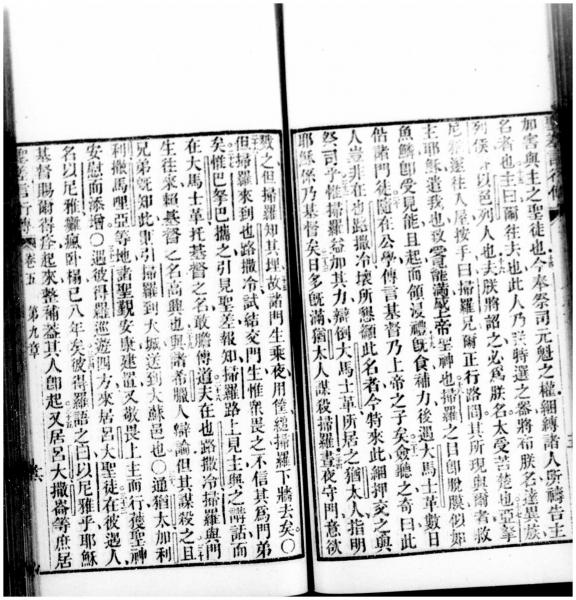 加害與主之聖徒也今奉祭司元魁之權細縛諸人所禱告主
名者也主曰爾徃夫也此人乃特選之器將布朕名達異族
列侯以色列人也夫朕將詔之必爲朕名太受苦楚也亞拿
尼遂徃入屋按手曰掃羅兄爾正行路間其所現與爾者救
主耶穌遣我也致受能滿感上帝聖神也掃羅之目卽脫膜似如
魚鱗卽受見能且起而領浸禮旣食補力後遇大馬士革數日
偕諸門徒隨在公學傳言基督乃上帝之子矣僉聽之奇曰此
人豈非在也路撒冷壞所懇籲此名者今特來此細押交之與
祭司乎惟掃羅益加其力辯倒大馬士革所居之猶太人指明
耶穌係乃基督矣日多旣滿猶太人謀殺掃羅晝夜守門意欲
戮之但掃羅知其埋故諸門生乘夜用筐縋掃羅下牆去矣〇
但掃羅來到也路撒冷試結交門生惟衆畏之不信其爲門弟
矣惟巴拏巴攜之引見聖差報知掃羅路上見主與之講話而
在大馬士革托基督之名敢膽傳道夫在也路撒冷掃羅與門
生徃來賴基督之名高興也與諸希臘人辯論但其謀殺之且
兄弟旣知此事引掃羅到大城送到大蘇邑也〇通猶太加利
利撒馬哩亞等地諸聖覡安康建置又敬畏上主而行獲聖神
安慰而添增〇遇彼得羅巡遊四方來居呂大聖徒在彼遇人
名以尼雅癱瘋臥榻已八年矣彼得羅語之曰以尼雅乎耶穌
基督賜爾得痊起來整補蓋其人卽起又居呂大撒崙等庶居
聖差言行傳 卷五 第九章